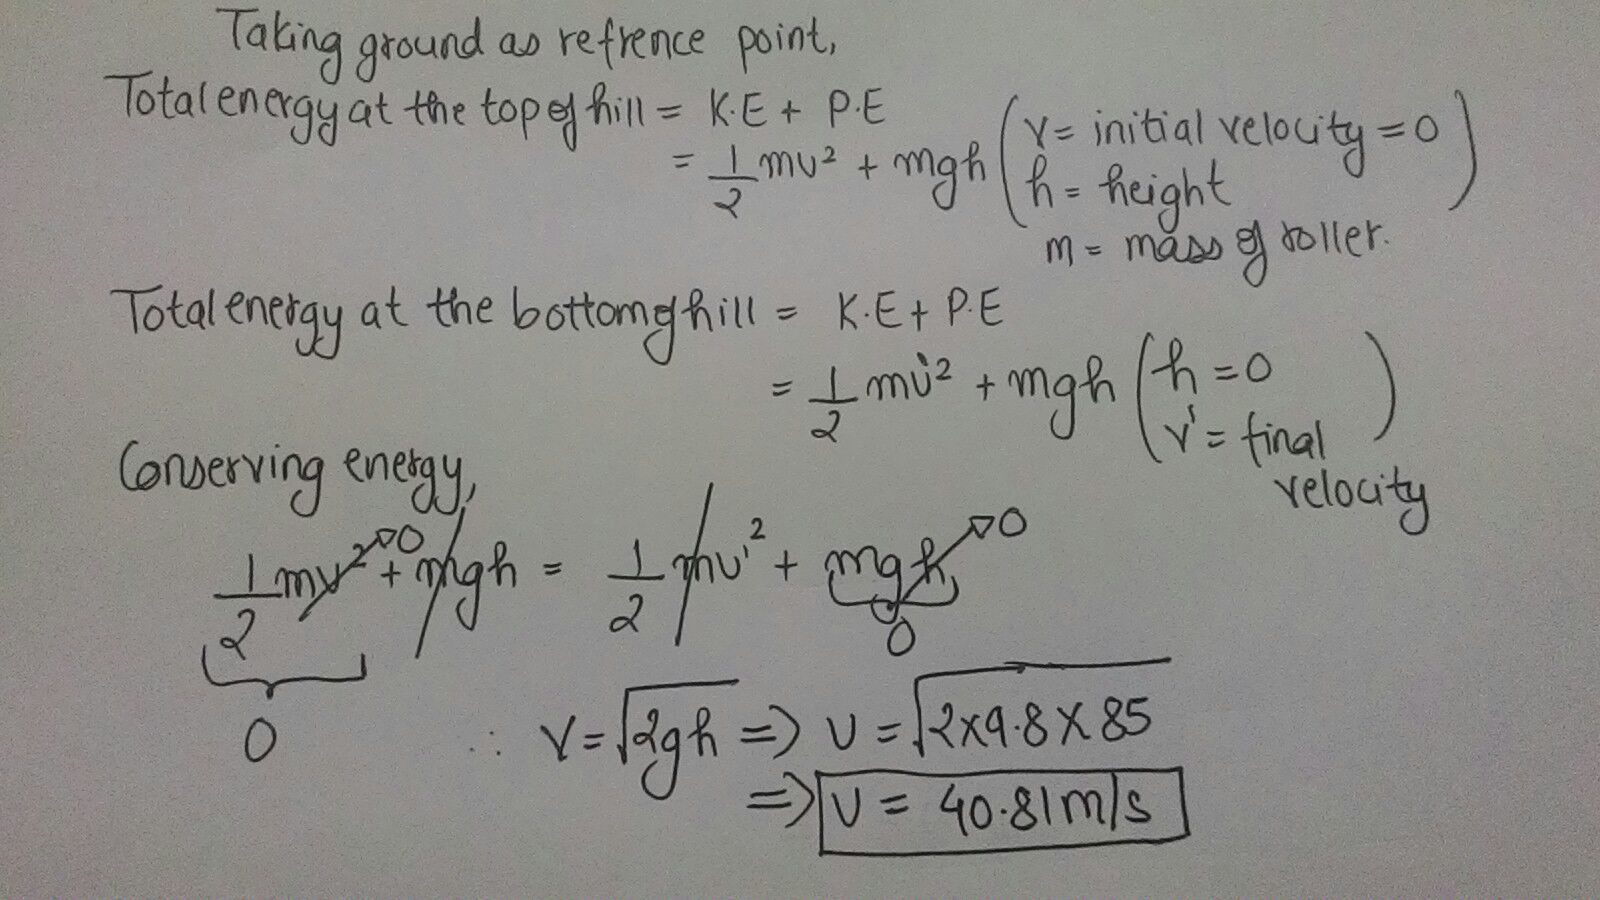 Taking ground as refrence point,
Total energy at the top of hill = K.E + P.E
= 1/2 mv² + mgh (v = initial velocity = 0
h = height)
m = mass of roller.
Total energy at the bottom of hill = K.E + P.E
= 1/2 mv'² + mgh (h = 0
v' = final)
velocity
Conserving energy,
1/2 mv² → 0 + mgh = 1/2 mv'² + mgh → 0
0
0
∴ v = √2gh => v = √2×9.8×85
=> v = 40.81 m/s